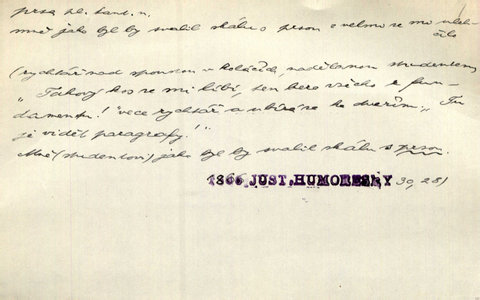 prsa pl. tant. n.
mně jako by byl svalil skálu s prsou a velmo se mi ulehčilo
(rychtář nad spoustou v koláčích, nadělanou studentem)
„Takový kos se mi líbí, ten bere všecko z fun-
damentu!" vece rychtář a ubírá se ke dveřím: „Tu
je vidět paragrafy!"
Mně (studentovi) jako by byl svalil skálu s prsou.
1866 JUST. HUMORESKY 30, 28)